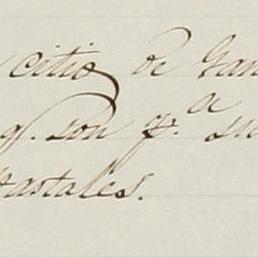 citio de Gan
q. son p.a su
Pastales.